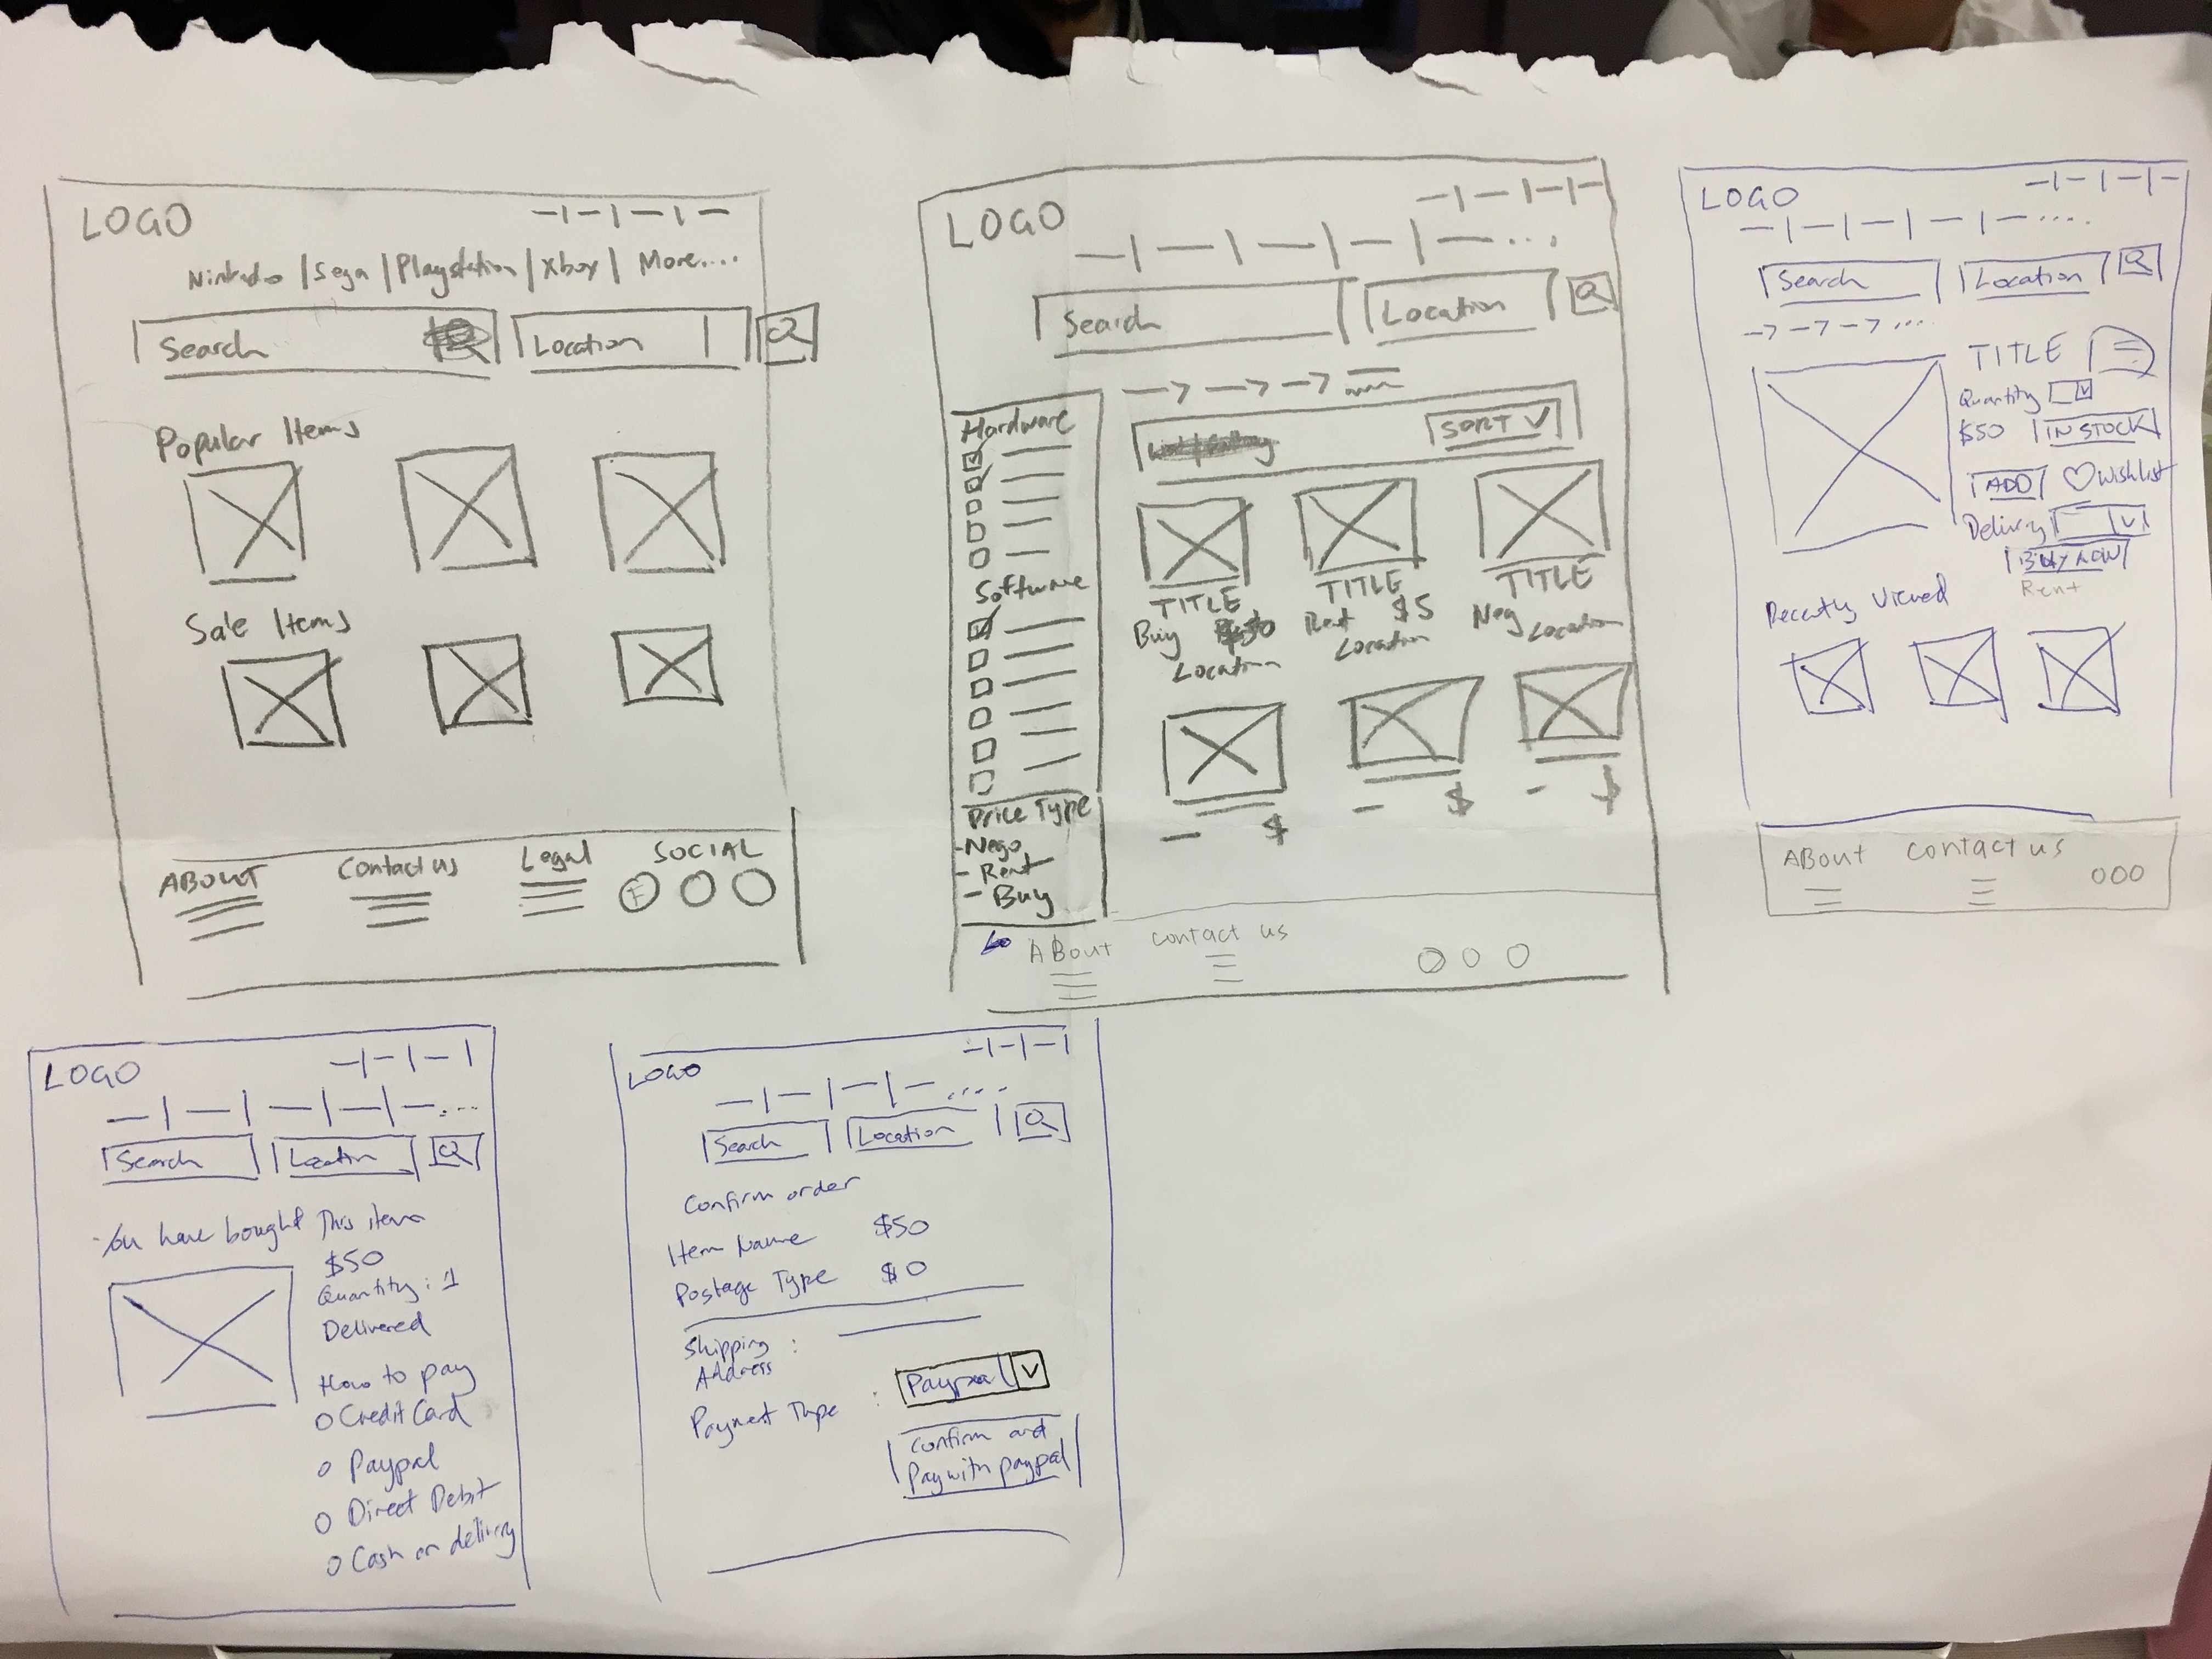 LOGO
Nintendo | Sega | Playstation | Xbox | More....
Search
Location
Popular Items
Sale Items
ABOUT
Contact us
Legal
SOCIAL
F
LOGO
Search
Location
Hardware
SORT
Software
TITLE
Buy $50
Location
TITLE
Rent $5
Location
TITLE
Neg Location
$
$
$
Price Type
- Nego
- Rent
- Buy
ABout
contact us
LOGO
Search
Location
TITLE
Quantity
$50 IN STOCK
ADD Wishlist
Delivery
BUY NOW
Rent
Recently Viewed
ABout
contact us
LOGO
Search
Location
You have bought This item
$50
Quantity : 1
Delivered
How to pay
Credit Card
Paypal
Direct Debit
Cash on delivery
LOGO
Search
Location
Confirm order
Item Name $50
Postage Type $0
Shipping :
Address
Payment Type : Paypal
Confirm and
Pay with paypal